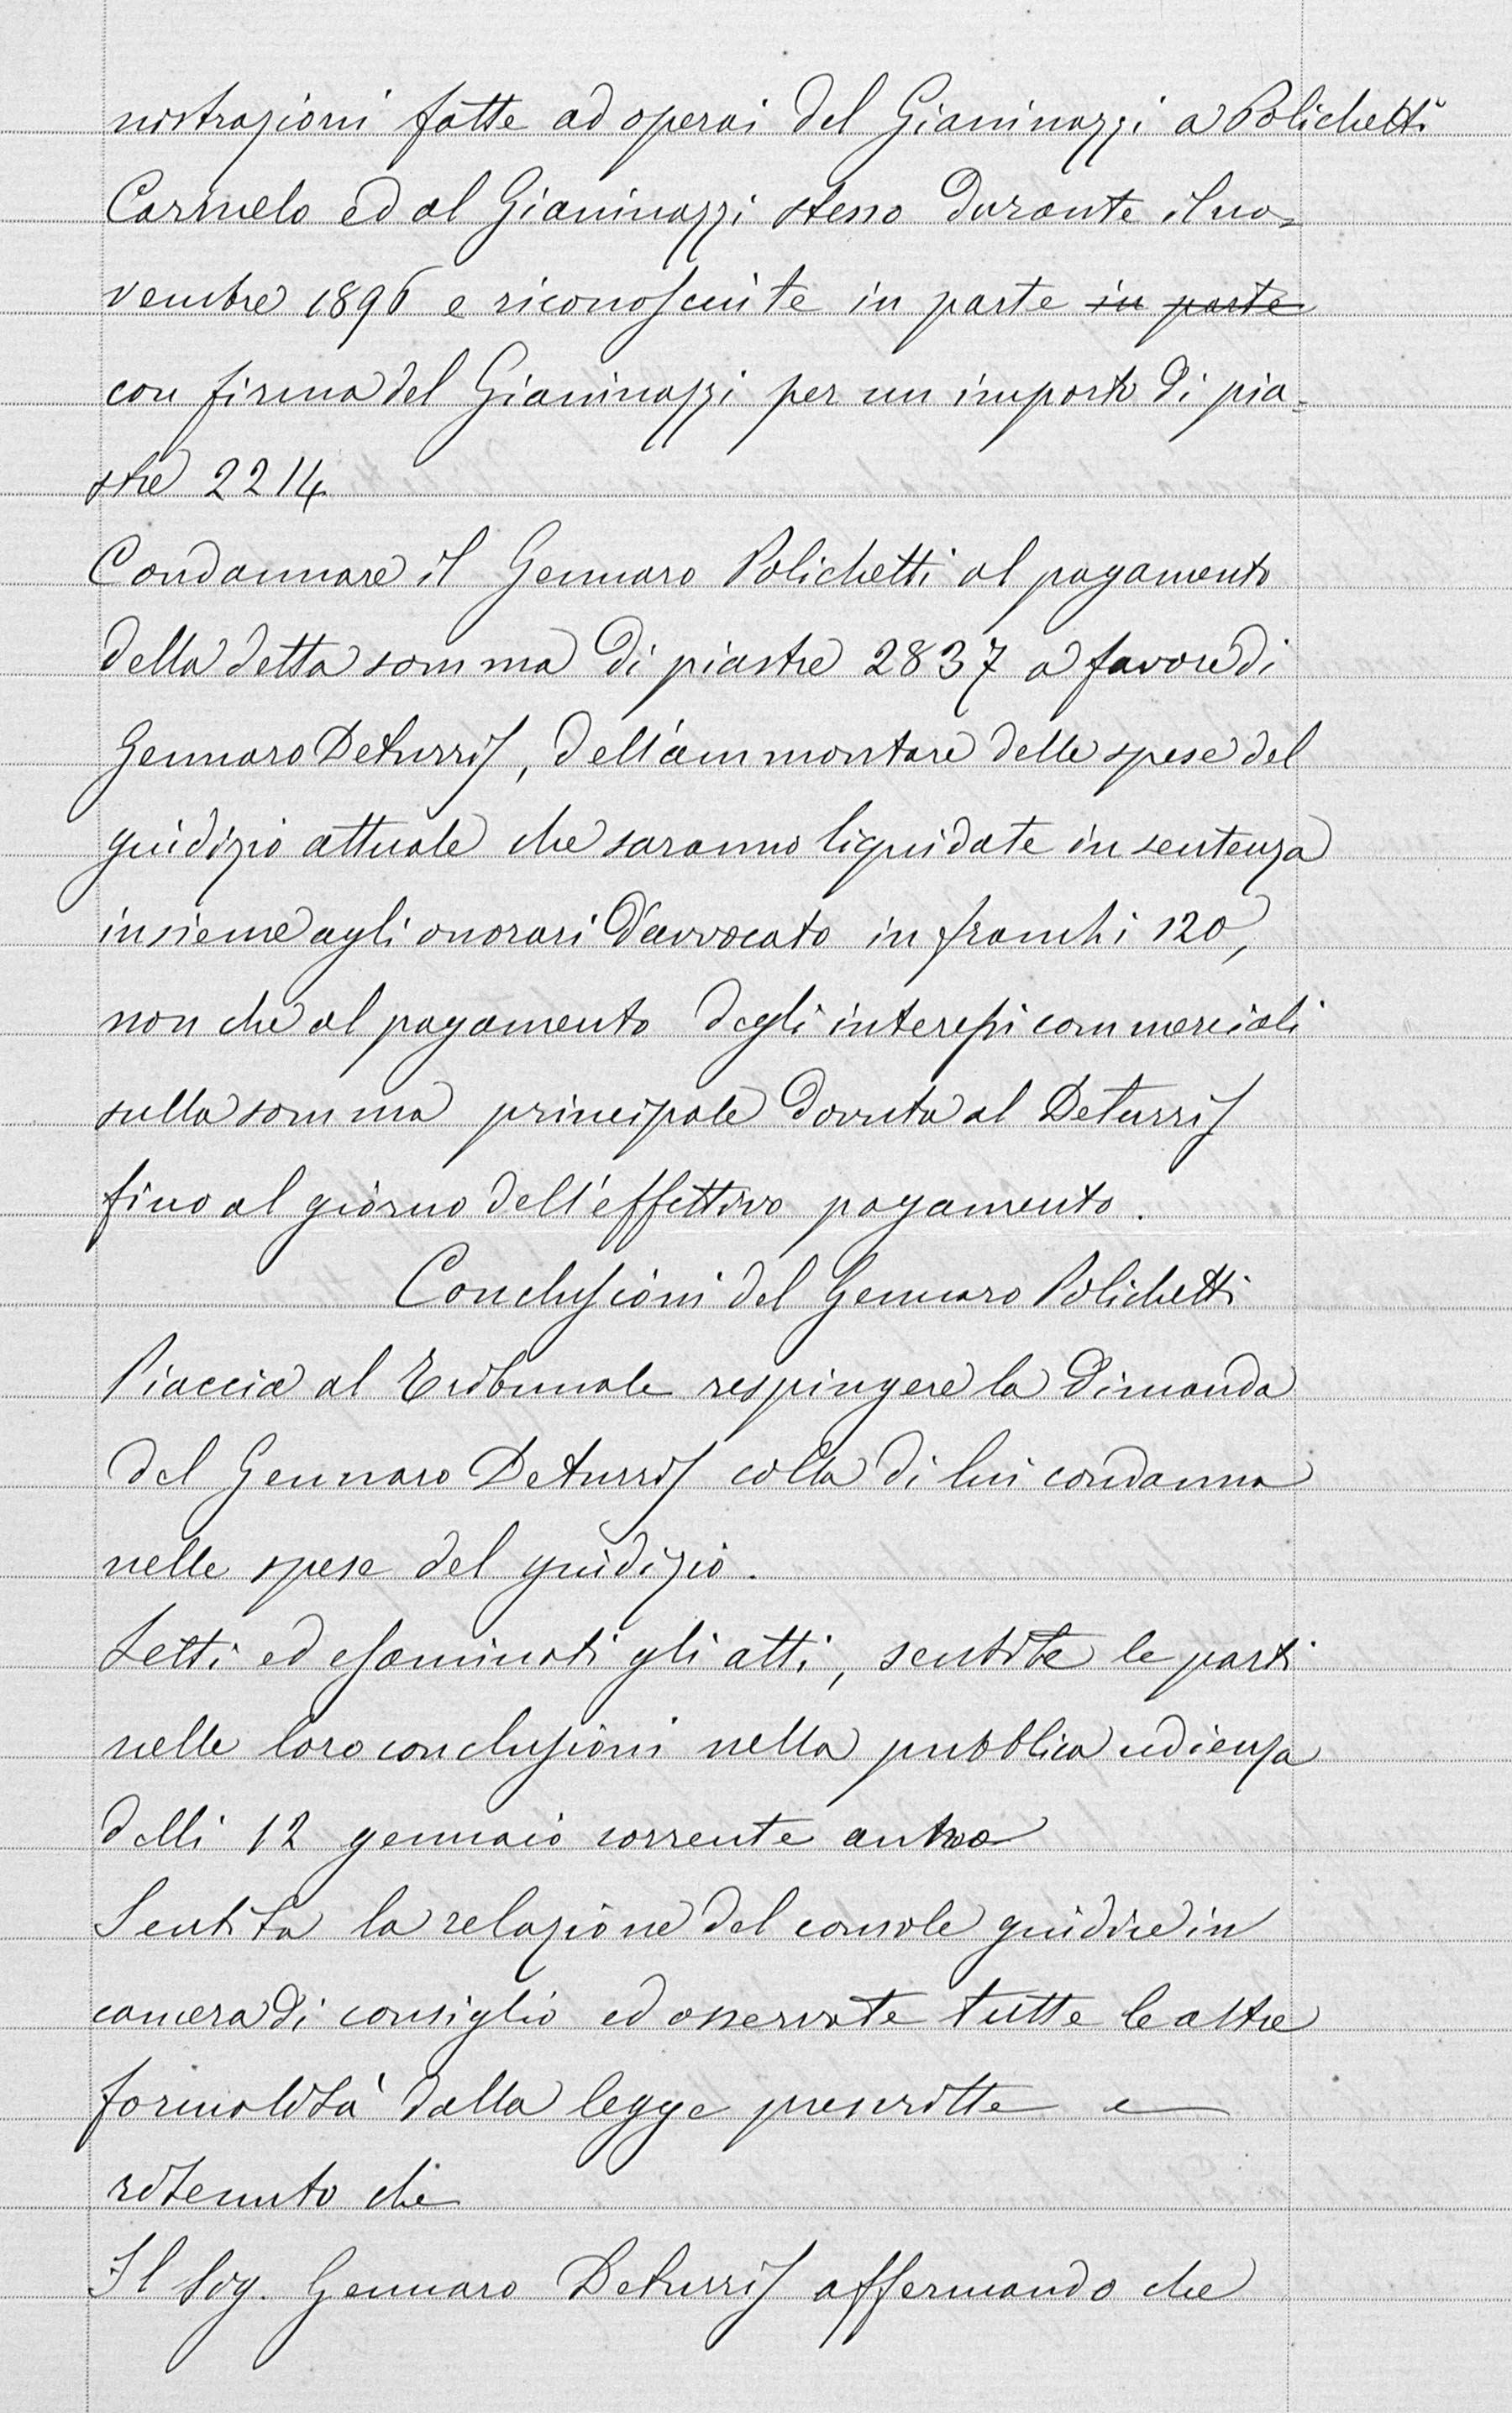 nistrazioni fatte ad operai del Gianinazzi a Polichetti
Carmelo ed al Gianinazzi stesso durante il no=
vembre 1896 e riconosciute in parte in parte
con firma del Gianinazzi per un importo di pia=
stre 2214
Condannare il Gennaro Polichetti al pagamento
della detta somma di piastre 2837 a favore di
Gennaro Deturris, dell'ammontare delle spese del
giudizio attuale che saranno liquidate in sentenza
insieme agli onorari d'avvocato in franchi 120,
non che al pagamento degli interessi commerciali
sulla somma principale dovuta al Deturris
fino al giorno dell'effettivo pagamento.
Conclusioni del Gennaro Polichetti
Piaccia al Tribunale respingere la dimanda
del Gennaro Deturris colla di lui condanna
nelle spese del giudizio.
Letti ed esaminati gli atti, sentite le parti
nelle loro conclusioni nella pubblica udienza
delli 12 gennaio corrente anno
Sentita la relazione del console giudice in
camera di consiglio ed osservate tutte le altre
formalità dalla legge prescritte e
ritenuto che
Il Sig. Gennaro Deturris affermando che